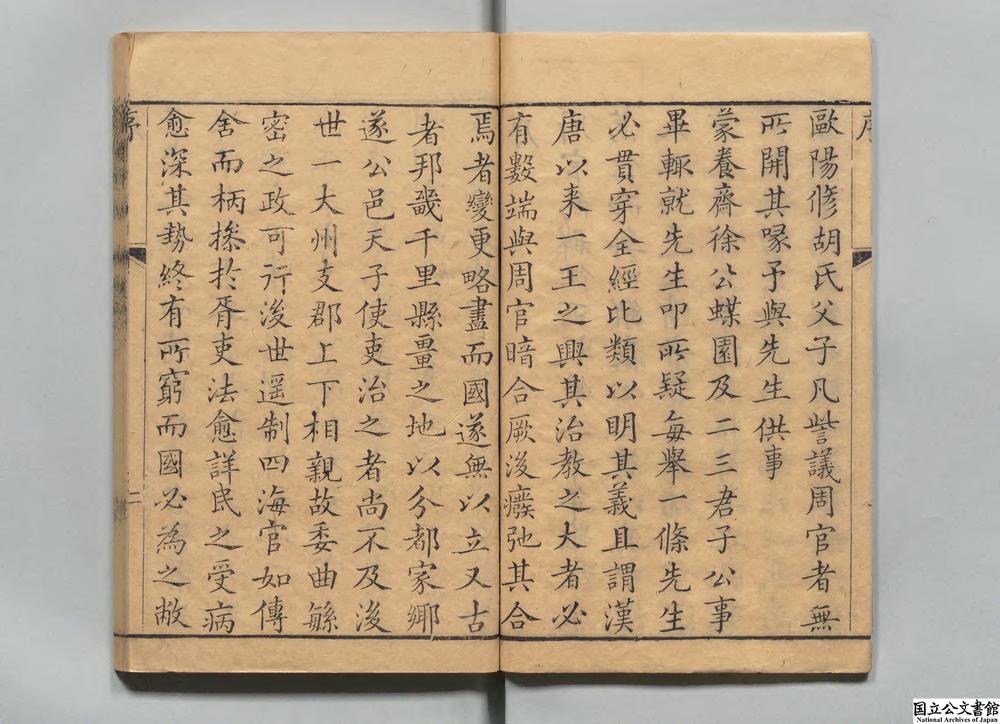 序
歐陽修胡氏父子凡訾議周官者無
所開其喙予與先生供事
蒙養齋徐公蝶園及二三君子公事
畢輒就先生叩所疑每舉一條先生
必貫穿全經比類以明其義且謂漢
唐以来一王之興其治教之大者必
有數端與周官暗合厥後癈弛其合
焉者變更略盡而國遂無以立又古
者邦畿千里縣畺之地以分都家鄉
遂公邑天子使吏治之者尚不及後
世一大州支郡上下相親故委曲緐
密之政可行後世遥制四海官如傳
舍而柄撡扵胥吏法愈詳民之受病
愈深其勢終有所窮而國必為之敝
序
二
国立公文書館
National Archives of Japan